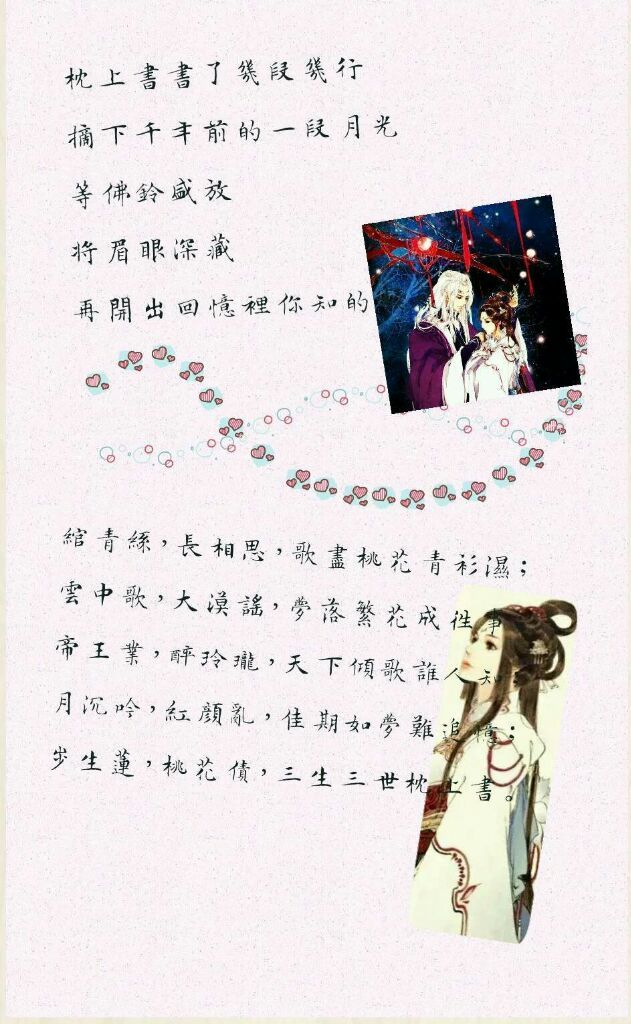 枕上書書了幾段幾行
摘下千年前的一段月光
等佛鈴盛放
將眉眼深藏
再開出回憶裡你知的
綰青絲，長相思，歌盡桃花青衫濕；
雲中歌，大漠謠，夢落繁花成往事
帝王業，醉玲瓏，天下傾歌誰人知；
月沉吟，紅顏亂，佳期如夢難追憶；
步生蓮，桃花債，三生三世枕上書。